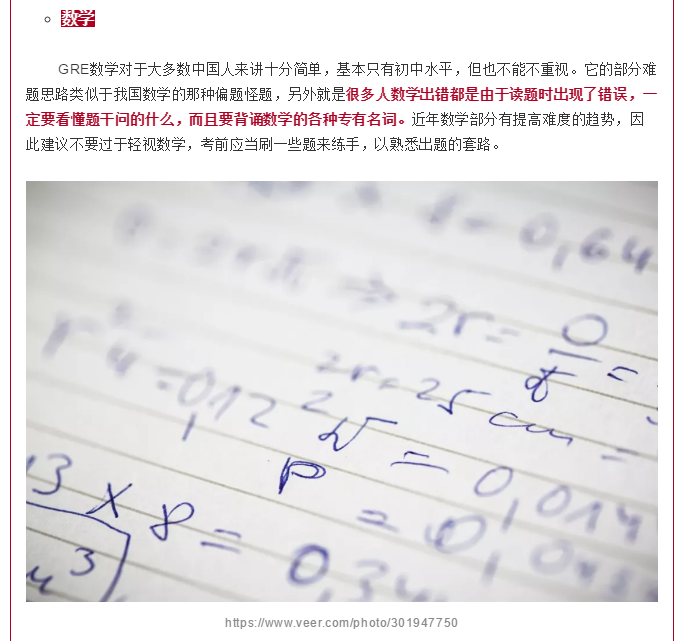 数学
GRE数学对于大多数中国人来讲十分简单，基本只有初中水平，但也不能不重视。它的部分难
题思路类似于我国数学的那种偏题怪题，另外就是很多人数学出错都是由于读题时出现了错误，一
定要看懂题干问的什么，而且要背诵数学的各种专有名词。近年数学部分有提高难度的趋势，因
此建议不要过于轻视数学，考前应当刷一些题来练手，以熟悉出题的套路。
2r =
= 0,12
2r = 25 cm =
= 0,014
13 x 8 = 0,34
https://www.veer.com/photo/301947750